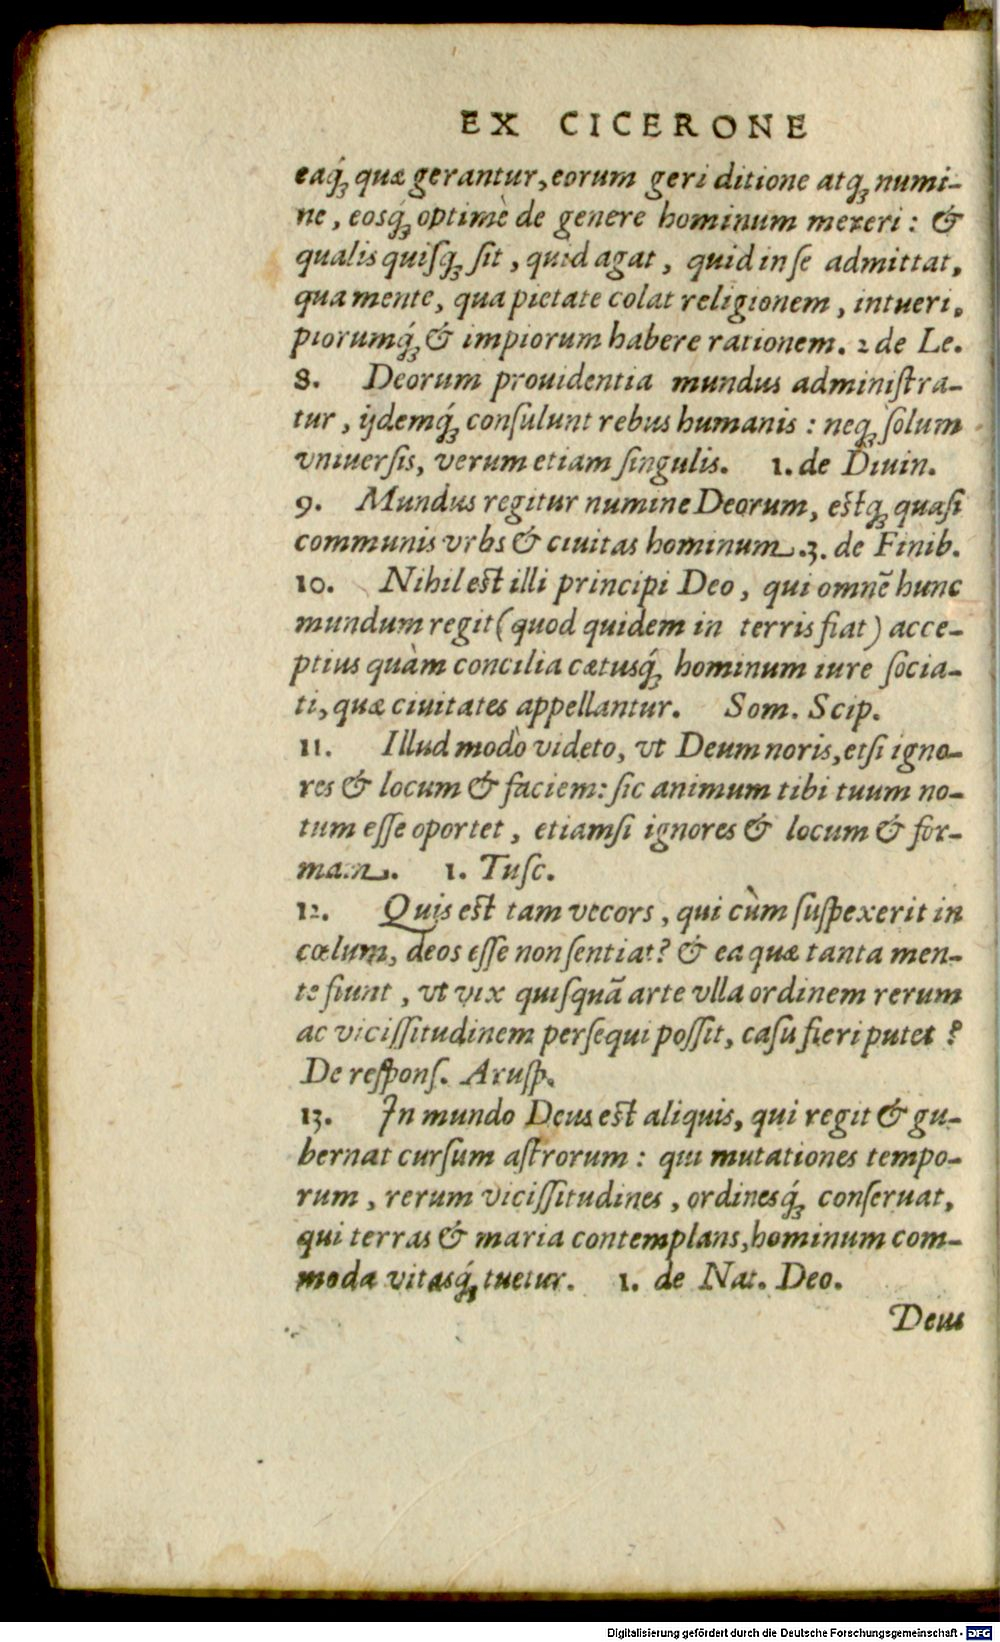 EX CICERONE
eaq́ꝫ quæ gerantur, eorum geri ditione atqꝫ numi-
ne, eosq́ꝫ optimè de genere hominum mereri: &
qualis quiſqꝫ ſit, quid agat, quid in ſe admittat,
qua mente, qua pietate colat religionem, intueri,
piorumq́ꝫ & impiorum habere rationem. 2 de Le.
8. Deorum prouidentia mundus adminiſtra-
tur, ijdemq́ꝫ conſulunt rebus humanis: neqꝫ ſolum
vniuerſis, verum etiam ſingulis. 1. de Diuin.
9. Mundus regitur numine Deorum, eſtqꝫ quaſi
communis vrbs & ciuitas hominum. 3. de Finib.
10. Nihil eſt illi principi Deo, qui omnẽ hunc
mundum regit (quod quidem in terris fiat) acce-
ptius quàm concilia cœtusq́ꝫ hominum iure ſocia-
ti, quæ ciuitates appellantur. Som. Scip.
11. Illud modò videto, vt Deum noris, etſi igno-
res & locum & faciem: ſic animum tibi tuum no-
tum eſſe oportet, etiamſi ignores & locum & for-
mam. 1. Tuſc.
12. Quis eſt tam vecors, qui cùm ſuſpexerit in
cœlum, deos eſſe non ſentiat? & ea quæ tanta men-
te fiunt, vt vix quiſquã arte vlla ordinem rerum
ac viciſſitudinem perſequi poſſit, caſu fieri putet?
De reſponſ. Aruſp.
13. In mundo Deus eſt aliquis, qui regit & gu-
bernat curſum aſtrorum: qui mutationes tempo-
rum, rerum viciſſitudines, ordinesq́ꝫ conſeruat,
qui terras & maria contemplans, hominum com-
moda vitasq́ꝫ tuetur. 1. de Nat. Deo.
Deus
Digitalisierung gefördert durch die Deutsche Forschungsgemeinschaft - DFG